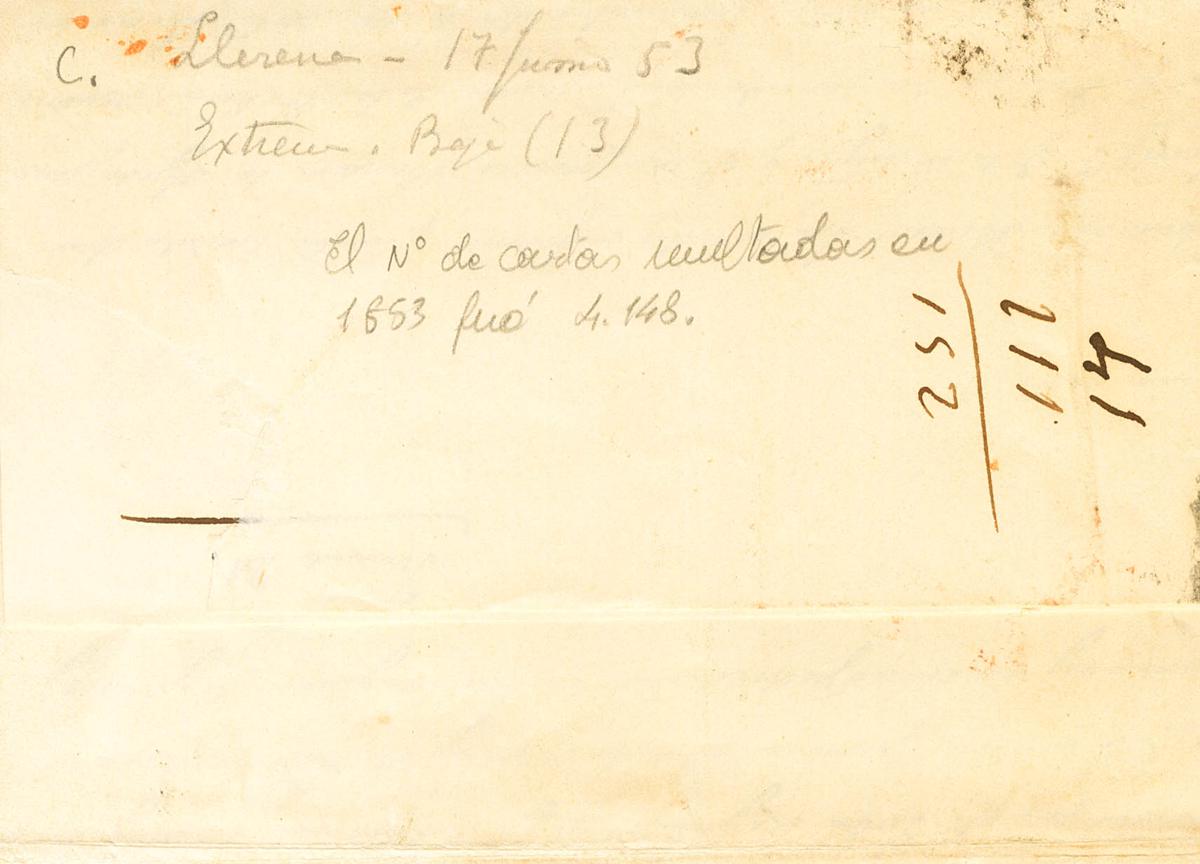 C.
Llerena - 17 Junio 53
Extrem. Baja (13)
El Nº de cartas multadas en
1853 fué 4.148.
251
112
14